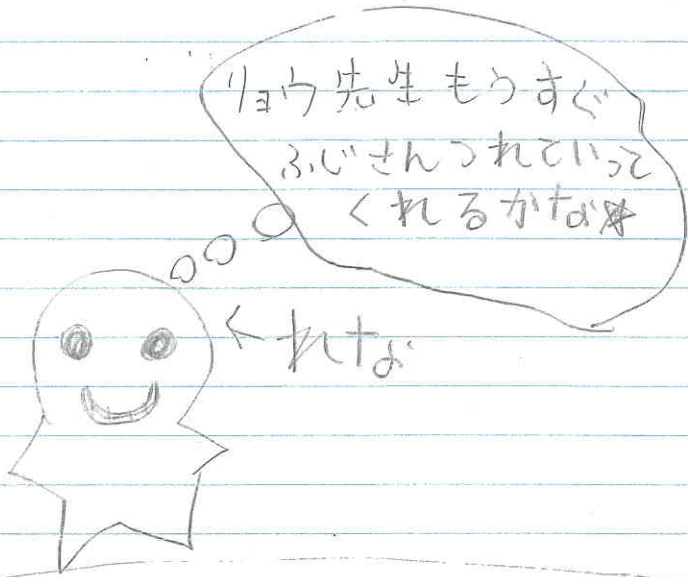 リョウ先生もうすぐ
ふじさんつれていって
くれるかな☆
←れな